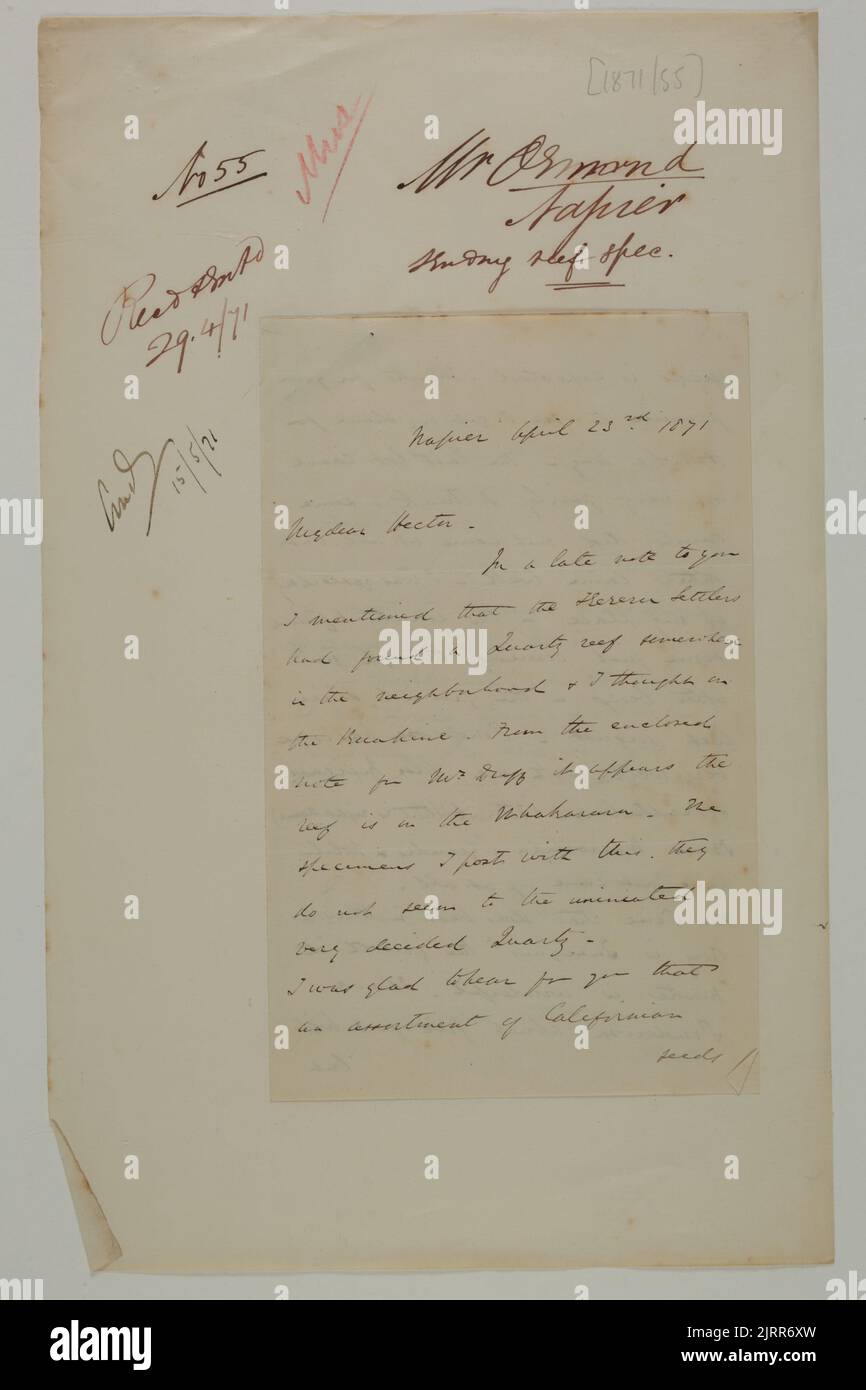 [1871/55]
No 55
Mr Ormond
Napier
sending reef spec.
Recd & Entd
29.4/71
15/5/71
Napier April 23rd 1871
My dear Hector -
In a late note to you
I mentioned that the Settlers
had found a Quartz reef somewhere
in the neighborhood & I thought in
the Ruahine. From the enclosed
note fm Mr Duff it appears the
reef is in the Whakarara. The
specimens I post with this. they
do not seem to the uniniated
very decided Quartz -
I was glad to hear fm you that
an assortment of Californian
seeds
alamy
Image ID: 2JRR6XW
www.alamy.com